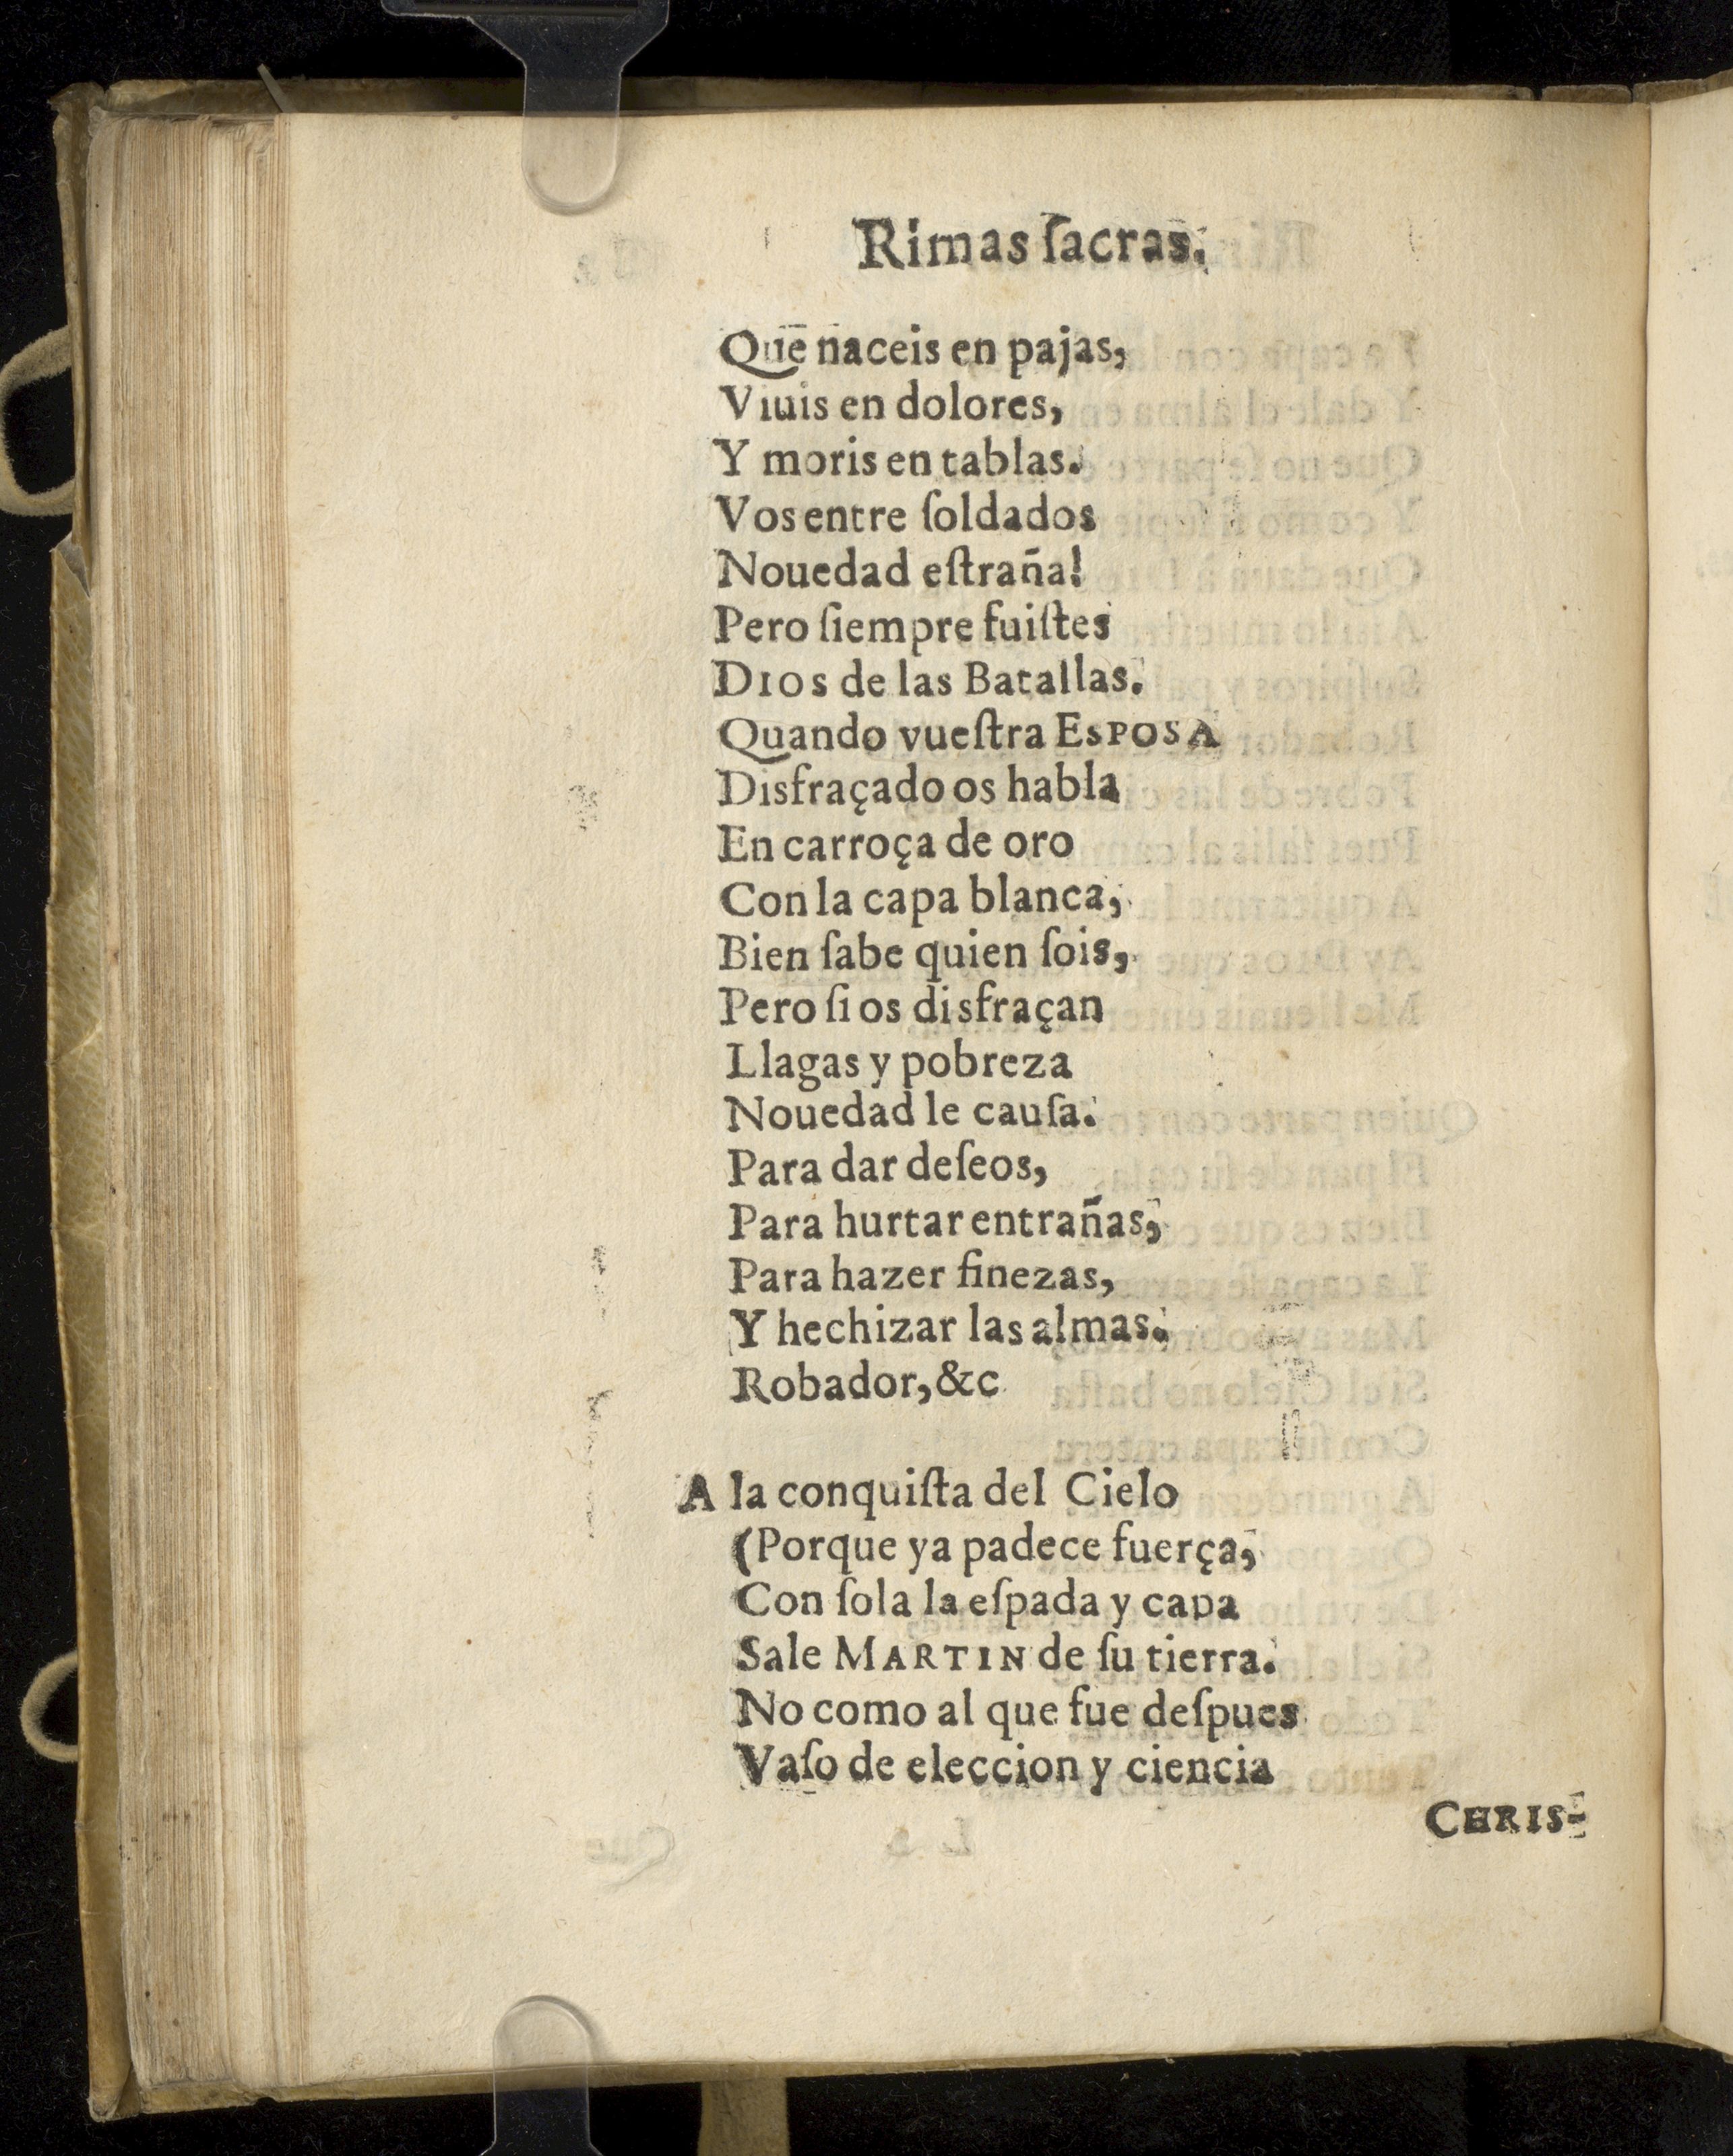 Rimas ſacras.
Que naceis en pajas,
Viuis en dolores,
Y moris en tablas.
Vos entre ſoldados
Nouedad eſtraña!
Pero ſiempre fuiſtes
DIOS de las Batallas.
Quando vueſtra ESPOSA
Disfraçado os habla
En carroça de oro
Con la capa blanca,
Bien ſabe quien ſois,
Pero ſi os disfraçan
Llagas y pobreza
Nouedad le cauſa.
Para dar deſeos,
Para hurtar entrañas,
Para hazer finezas,
Y hechizar las almas.
Robador, &c
A la conquiſta del Cielo
(Porque ya padece fuerça,
Con ſola la eſpada y capa
Sale MARTIN de ſu tierra.
No como al que fue deſpues
Vaſo de eleccion y ciencia
CHRIS-